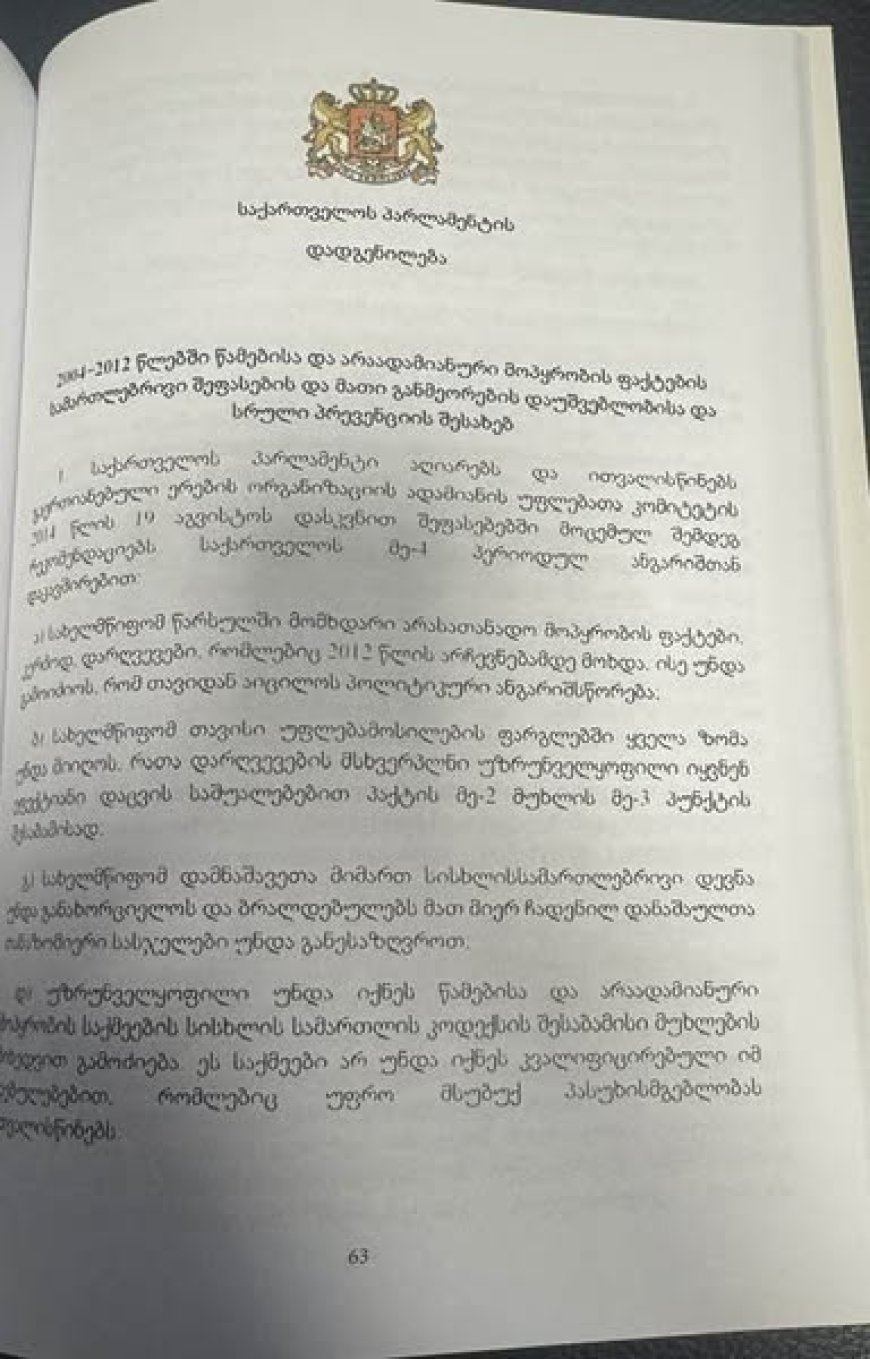 საქართველოს პარლამენტის
დადგენილება
2004-2012 წლებში წამებისა და არაადამიანური მოპყრობის ფაქტების
სამართლებრივი შეფასების და მათი განმეორების დაუშვებლობისა და
სრული პრევენციის შესახებ
1. საქართველოს პარლამენტი აღიარებს და ითვალისწინებს
გაერთიანებული ერების ორგანიზაციის ადამიანის უფლებათა კომიტეტის
2014 წლის 19 აგვისტოს დასკვნით შეფასებებში მოცემულ შემდეგ
რეკომენდაციებს საქართველოს მე-4 პერიოდულ ანგარიშთან
დაკავშირებით:
ა) სახელმწიფომ წარსულში მომხდარი არასათანადო მოპყრობის ფაქტები,
კერძოდ, დარღვევები, რომლებიც 2012 წლის არჩევნებამდე მოხდა, ისე უნდა
გამოიძიოს, რომ თავიდან აიცილოს პოლიტიკური ანგარიშსწორება;
ბ) სახელმწიფომ თავისი უფლებამოსილების ფარგლებში ყველა ზომა
უნდა მიიღოს, რათა დარღვევების მსხვერპლნი უზრუნველყოფილი იყვნენ
ეფექტიანი დაცვის საშუალებებით პაქტის მე-2 მუხლის მე-3 პუნქტის
შესაბამისად;
გ) სახელმწიფომ დამნაშავეთა მიმართ სისხლისსამართლებრივი დევნა
უნდა განახორციელოს და ბრალდებულებს მათ მიერ ჩადენილ დანაშაულთა
თანაზომიერი სასჯელები უნდა განესაზღვროთ;
დ) უზრუნველყოფილი უნდა იქნეს წამებისა და არაადამიანური
მოპყრობის საქმეების სისხლის სამართლის კოდექსის შესაბამისი მუხლების
მიხედვით გამოძიება. ეს საქმეები არ უნდა იქნეს კვალიფიცირებული იმ
მუხლებით, რომლებიც უფრო მსუბუქ პასუხისმგებლობას
ითვალისწინებს.
63